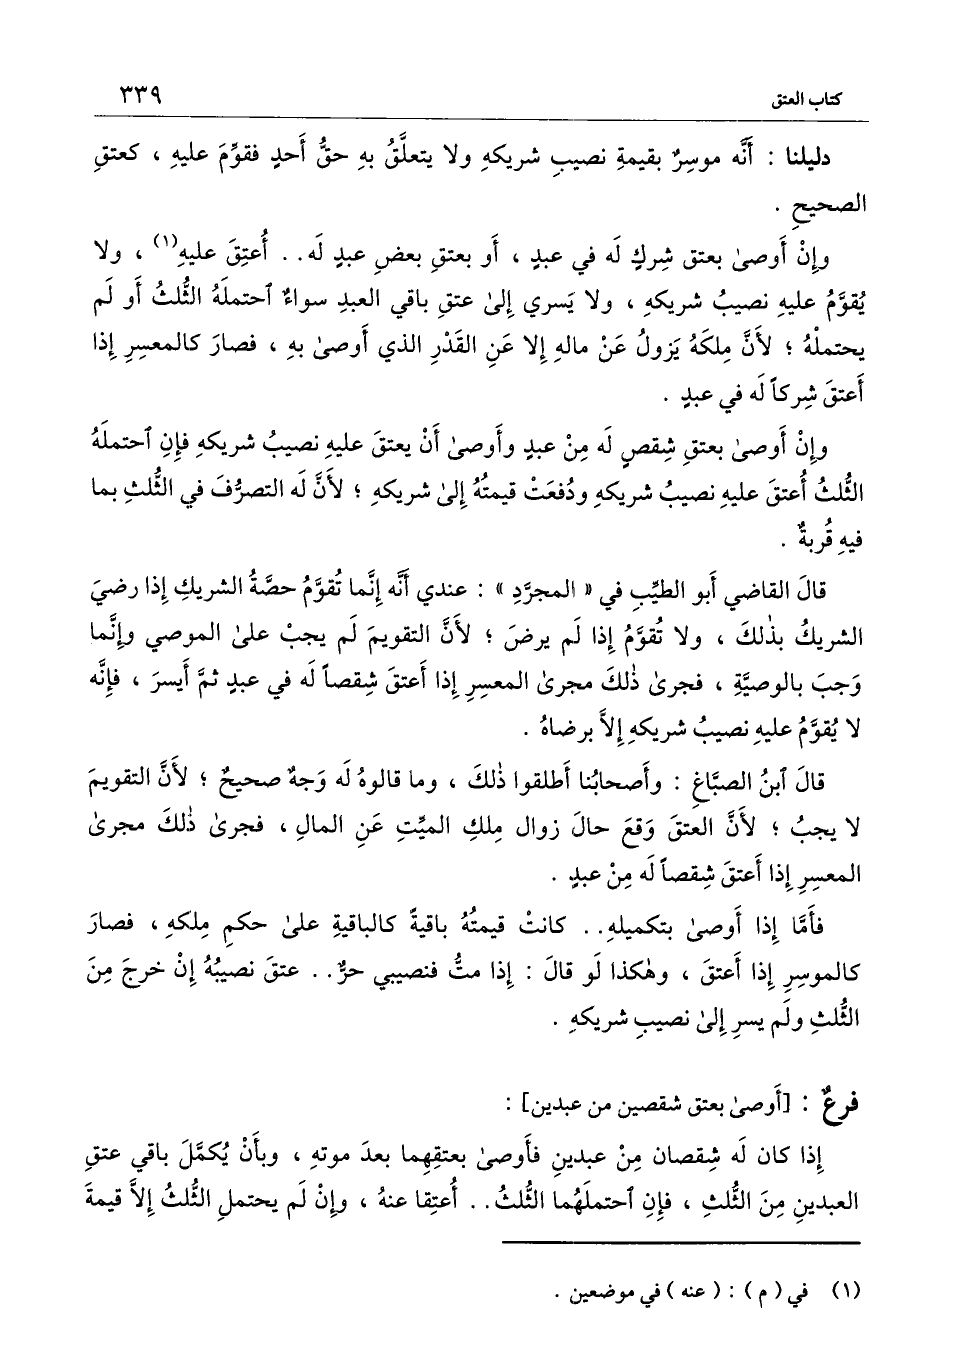 كتاب العتق ٣٣٩
دليلنا : أَنَّه موسِرٌ بقيمةِ نصيبِ شريكهِ ولا يتعلَّقُ بهِ حقُّ أَحدٍ فقوِّمَ عليهِ ، كعتقِ
الصحيحِ .
وإِنْ أَوصىٰ بعتق شِركٍ لَه في عبد ، أَو بعتقِ بعضِ عبدٍ لَه . . أُعتِقَ عليهِ(١) ، ولا
يُقوَّمُ عليهِ نصيبُ شريكهِ ، ولا يَسري إِلىٰ عتق باقي العبدِ سواءٌ ٱحتملَهُ الثُّلثُ أَو لَم
يحتملْهُ ؛ لأَنَّ مِلكَهُ يَزولُ عَنْ مالهِ إِلا عَنِ القَدْرِ الذي أَوصىٰ بهِ ، فصارَ كالمعسِرِ إِذا
أَعتقَ شِركاً لَه في عبدٍ .
وإِنْ أَوصىٰ بعتقِ شِقصٍ لَه مِنْ عبدٍ وأَوصىٰ أَنْ يعتقَ عليهِ نصيبُ شريكهِ فإِنِ ٱحتملَهُ
الثُّلثُ أُعتقَ عليهِ نصيبُ شريكهِ ودُفعَتْ قيمتُهُ إِلىٰ شريكهِ ؛ لأَنَّ له التصرُّفَ في الثُّلثِ بما
فيهِ قُربةٌ .
قالَ القاضي أَبو الطيِّبِ في « المجرَّدِ » : عندي أَنَّه إِنَّما تُقوَّمُ حصَّةُ الشريكِ إِذا رضيَ
الشريكُ بذٰلكَ ، ولا تُقوَّمُ إِذا لَم يرضَ ؛ لأَنَّ التقويمَ لَم يجبْ علىٰ الموصي وإِنَّما
وَجبَ بالوصيَّةِ ، فجرىٰ ذٰلكَ مجرىٰ المعسِرِ إِذا أَعتقَ شِقصاً لَه في عبدٍ ثمَّ أَيسرَ ، فإِنَّه
لا يُقوَّمُ عليهِ نصيبُ شريكهِ إِلاَّ برضاهُ .
قالَ ٱبنُ الصبَّاغِ : وأَصحابُنا أَطلقوا ذٰلكَ ، وما قالوهُ لَه وَجهٌ صحيحٌ ؛ لأَنَّ التقويمَ
لا يجبُ ؛ لأَنَّ العتقَ وَقعَ حالَ زوال مِلكِ الميِّتِ عَنِ المالِ ، فجرىٰ ذٰلكَ مجرىٰ
المعسِرِ إِذا أَعتقَ شِقصاً لَه مِنْ عبدٍ .
فأَمَّا إِذا أَوصىٰ بتكميلهِ . . كانتْ قيمتُهُ باقيةً كالباقيةِ علىٰ حكمِ مِلكهِ ، فصارَ
كالموسِرِ إِذا أَعتقَ ، وهٰكذا لَو قالَ : إِذا متُّ فنصيبي حرٌّ . . عتقَ نصيبُهُ إِنْ خرجَ مِنَ
الثُّلثِ ولَم يسرِ إِلىٰ نصيبِ شريكهِ .
فرعٌ : [أَوصىٰ بعتق شقصين من عبدين] :
إِذا كان لَه شِقصان مِنْ عبدينِ فأَوصىٰ بعتقِهِما بعدَ موتهِ ، وبأَنْ يُكمَّلَ باقي عتقِ
العبدينِ مِنَ الثُّلثِ ، فإِنِ ٱحتملَهُما الثُّلثُ . . أُعتِقا عنهُ ، وإِنْ لَم يحتملِ الثُّلثُ إِلاَّ قيمةَ
(١) في ( م ) : ( عنه ) في موضعين .